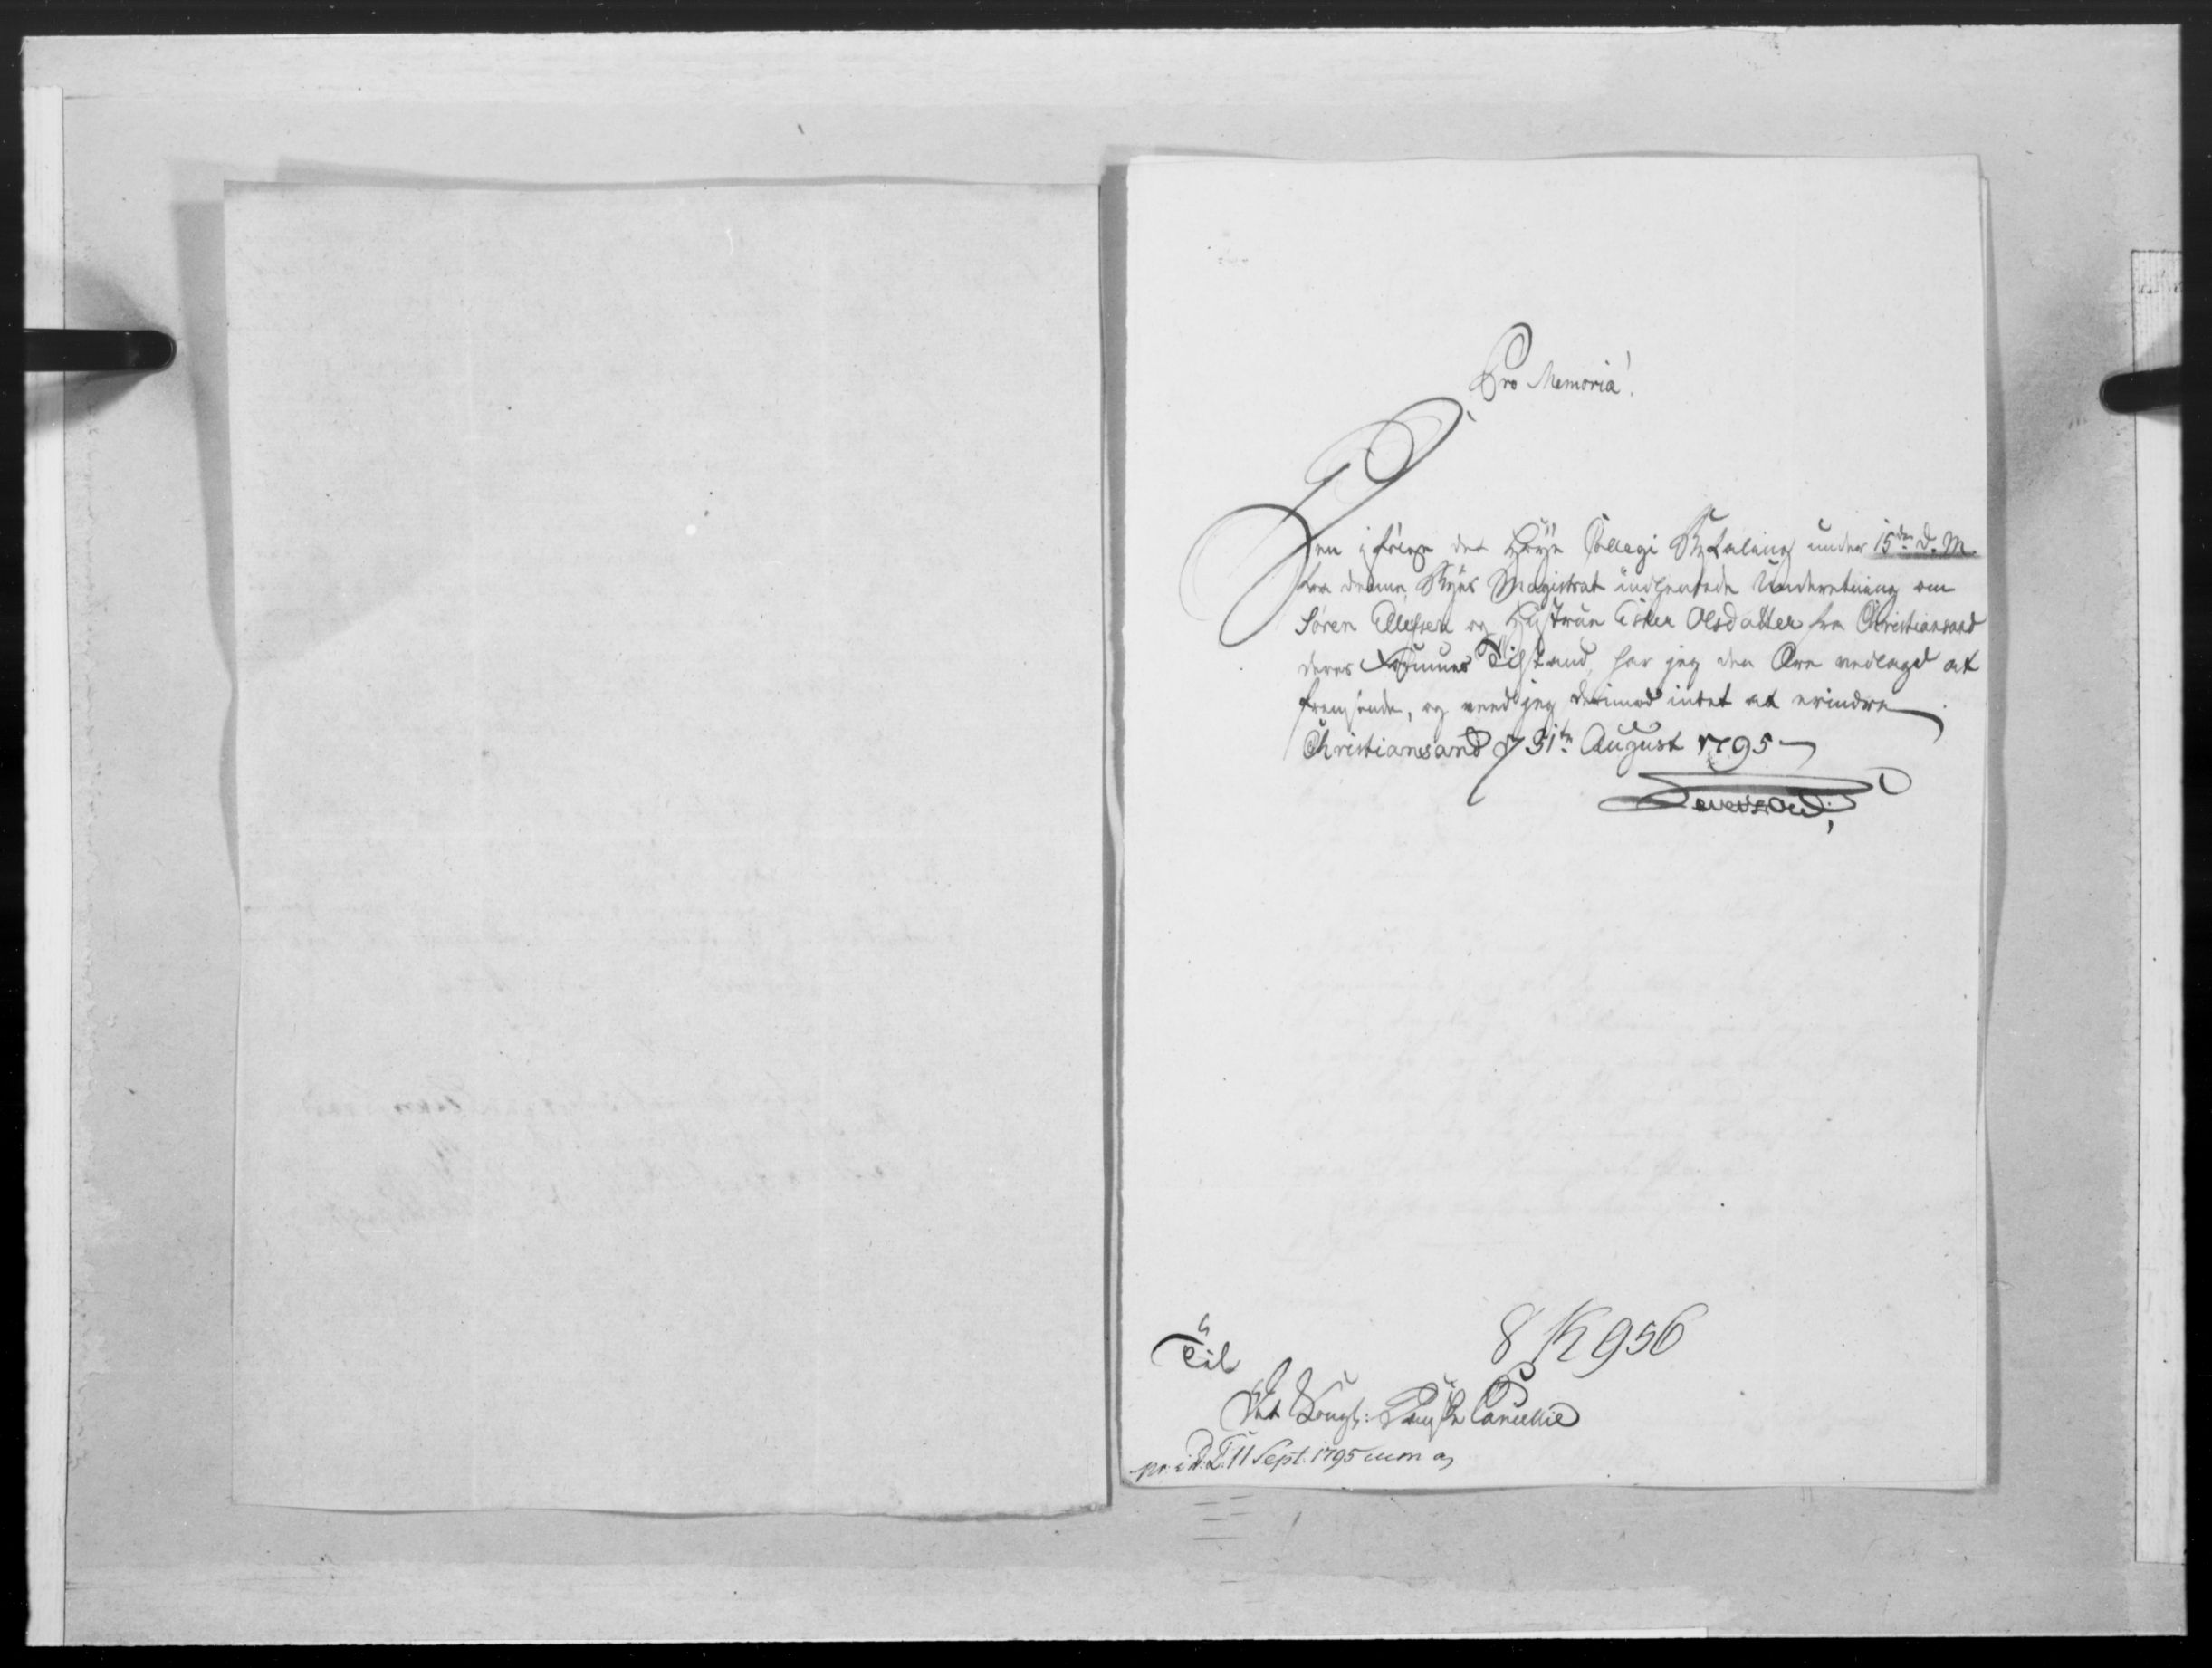 Pro Memoria!
Den i følge det Høye Collegi Befaling under 15de d. M.
fra denne Byes Magistrat indhentede Underretning om
Søren Ellefsen og Hustrue Esker Olsdatter fra Christiansand
deres Formues Tilstand, har jeg den Ære vedlagd at
fremsende, og veed jeg derimod intet at erindre
Christiansand d 31te August 1795
Til
8 K 956
Det Kongl: Danske Cancellie
pr. i d. D. 11 Sept. 1795